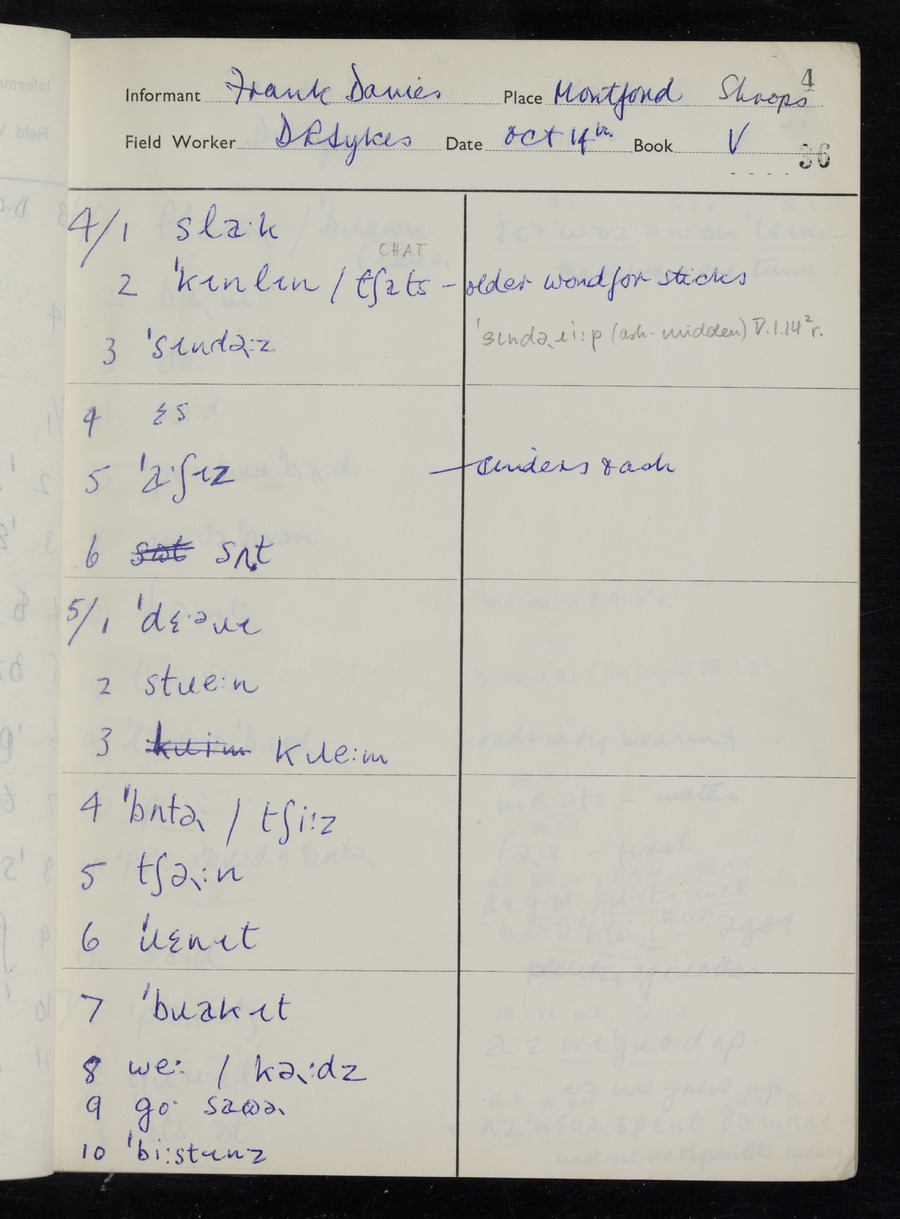 4
Informant Frank Davies Place Montford Shrops
Field Worker D R Sykes Date Oct 14th. Book V
36
4/1 slaˑk
CHAT
2 ˈkɪnlɪn / tʃats – older word for sticks
3 ˈsɪndəɹːz ˈsɪndəɹɪiːp (ash-midden) V.1.14² r.
4 ɛs
5 ˈaˑʃɪz – cinders & ash
6 sʌt
5/1 ˈdɛˑəɹɪ
2 stɹeːn
3 kɹeːm
4 ˈbʌtəɹ / tʃiːz
5 tʃəɹːn
6 ˈɹɛnɪt
7 ˈbɹakɪt
8 weː / kəɹːdz
9 goˑ saʊəɹ
10 ˈbiːstɪnz